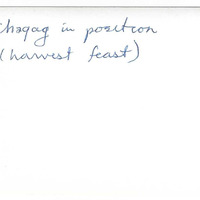 chogag in position
(harvest feast)